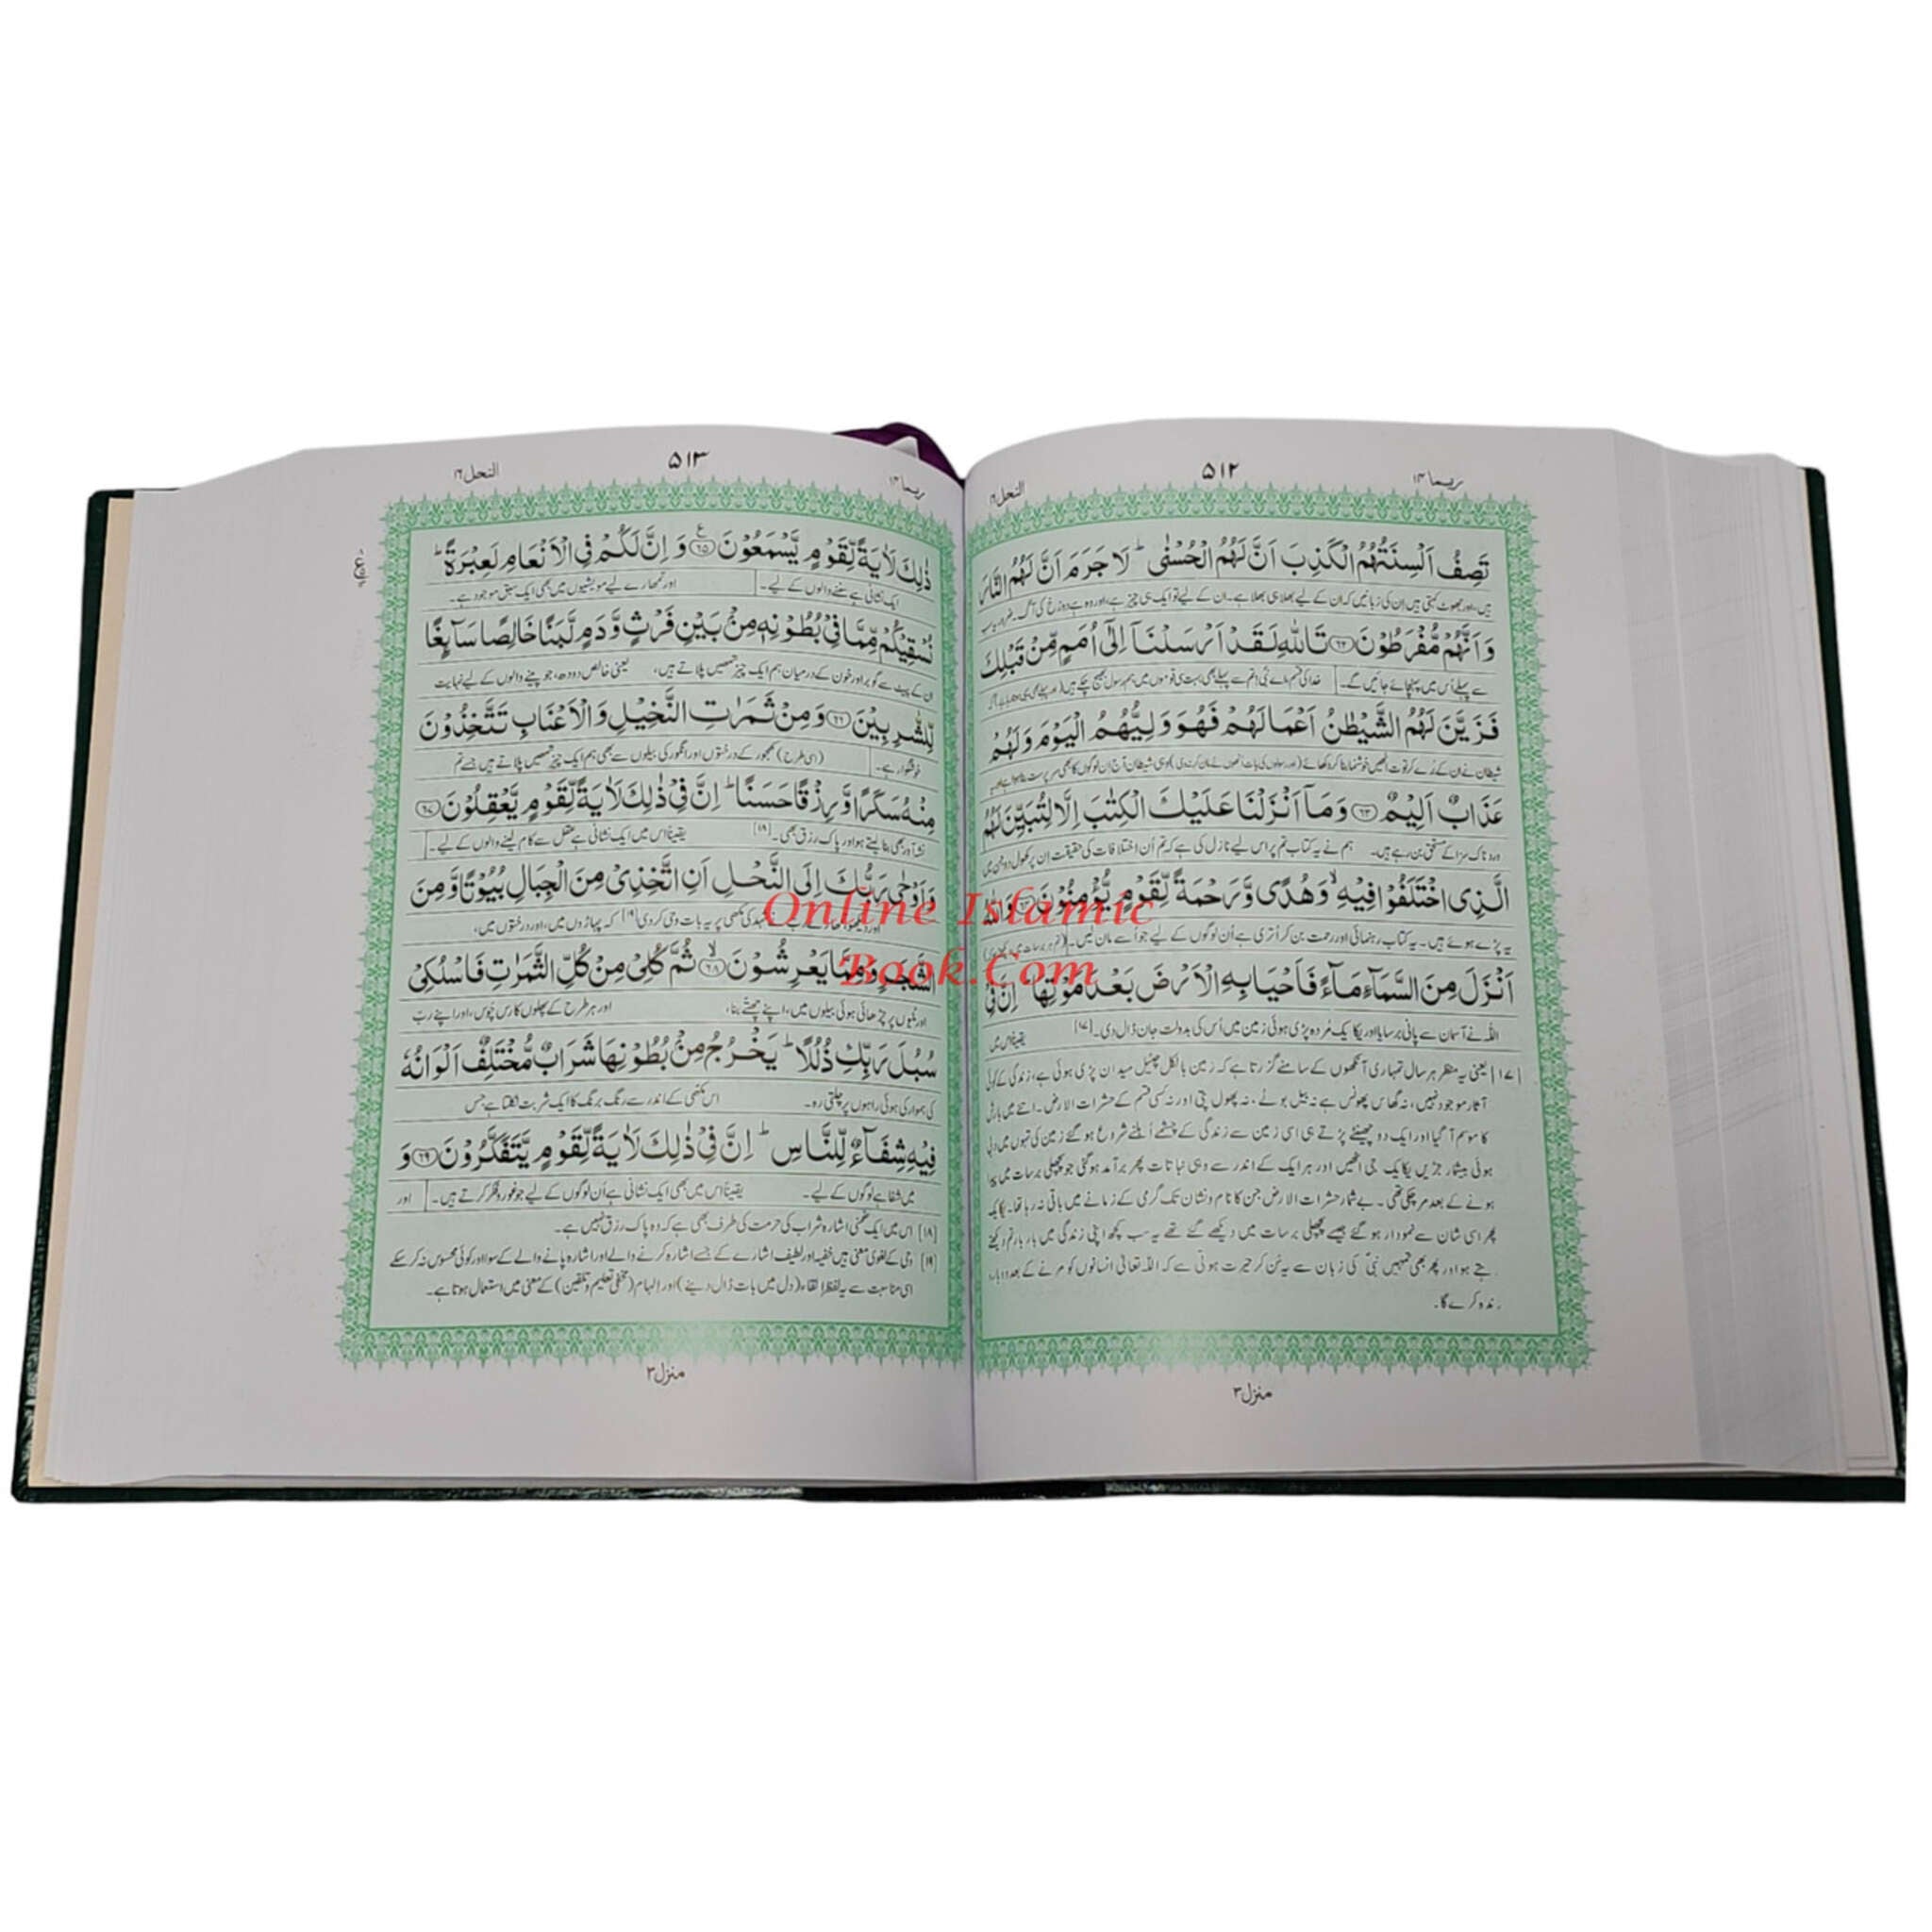 ربما ۱۴
۵۱۲
النحل ۱۶
تَصِفُ اَلۡسِنَتُهُمُ الۡكَذِبَ اَنَّ لَهُمُ الۡحُسۡنٰى ؕ لَا جَرَمَ اَنَّ لَهُمُ النَّارَ
ہیں، اور جھوٹ کہتی ہیں اِن کی زبانیں کہ اِن کے لیے بھلا ہی بھلا ہے۔ اِن کے لیے تو ایک ہی چیز ہے، اور وہ ہے دوزخ کی آگ۔ ضرور یہ سب
وَاَنَّهُمۡ مُّفۡرَطُوۡنَ ﴿۶۲﴾ تَاللّٰهِ لَـقَدۡ اَرۡسَلۡنَاۤ اِلٰٓى اُمَمٍ مِّنۡ قَبۡلِكَ
سے پہلے اُس میں پہنچائے جائیں گے۔ خدا کی قسم، اے نبیؐ! تم سے پہلے بھی بہت سی قوموں میں ہم رسول بھیج چکے ہیں
فَزَيَّنَ لَهُمُ الشَّيۡطٰنُ اَعۡمَالَهُمۡ فَهُوَ وَلِيُّهُمُ الۡيَوۡمَ وَلَهُمۡ
شیطان نے ان کے بُرے کرتوت انھیں خوشنما بنا کر دکھائے (اور رسولوں کی بات انھوں نے مان کر نہ دی) وہی شیطان آج ان لوگوں کا بھی سرپرست بنا ہوا ہے اور یہ
عَذَابٌ اَلِيۡمٌ ﴿۶۳﴾ وَمَاۤ اَنۡزَلۡنَا عَلَيۡكَ الۡـكِتٰبَ اِلَّا لِتُبَيِّنَ لَهُمُ
دردناک سزا کے مستحق بن رہے ہیں۔ ہم نے یہ کتاب تم پر اس لیے نازل کی ہے کہ تم اُن اختلافات کی حقیقت اِن پر کھول دو جن میں
الَّذِى اخۡتَلَـفُوۡا فِيۡهِۙ وَهُدًى وَّرَحۡمَةً لِّقَوۡمٍ يُّؤۡمِنُوۡنَ ﴿۶۴﴾ وَاللّٰهُ
یہ پڑے ہوئے ہیں۔ یہ کتاب رہنمائی اور رحمت بن کر اُتری ہے اُن لوگوں کے لیے جو اسے مان لیں۔ (تم ہر برسات میں دیکھتے ہو کہ)
اَنۡزَلَ مِنَ السَّمَآءِ مَآءً فَاَحۡيَا بِهِ الۡاَرۡضَ بَعۡدَ مَوۡتِهَا ؕ اِنَّ فِىۡ
اللہ نے آسمان سے پانی برسایا اور یکایک مُردہ پڑی ہوئی زمین میں اُس کی بدولت جان ڈال دی۔ [۱۷] یقیناً اس میں
[۱۷] یعنی یہ منظر ہر سال تمہاری آنکھوں کے سامنے گزرتا ہے کہ زمین بالکل چٹیل میدان پڑی ہوئی ہے، زندگی کے کوئی
آثار موجود نہیں، نہ گھاس پھونس ہے نہ بیل بوٹے، نہ پھول پتی اور نہ کسی قسم کے حشرات الارض۔ اتنے میں بارش
کا موسم آ گیا اور ایک دو چھینٹے پڑتے ہی اسی زمین سے زندگی کے چشمے اُبلنے شروع ہو گئے زمین کی تہوں میں دبی
ہوئی بیشمار جڑیں یکایک جی اٹھیں اور ہر ایک کے اندر سے وہی نباتات پھر برآمد ہو گئی جو پچھلی برسات میں پیدا
ہونے کے بعد مر چکی تھی۔ بے شمار حشرات الارض جن کا نام و نشان تک گرمی کے زمانے میں باقی نہ رہا تھا۔ یکایک
پھر اسی شان سے نمودار ہو گئے جیسے پچھلی برسات میں دیکھے گئے تھے یہ سب کچھ اپنی زندگی میں بار بار تم دیکھتے
رہتے ہو اور پھر بھی تمہیں نبیؐ کی زبان سے یہ سُن کر حیرت ہوتی ہے کہ اللہ تعالیٰ انسانوں کو مرنے کے بعد دوبارہ
زندہ کرے گا۔
منزل ۳
ربما ۱۴
۵۱۳
النحل ۱۶
ذٰلِكَ لَاٰيَةً لِّقَوۡمٍ يَّسۡمَعُوۡنَ ﴿۶۵﴾ وَاِنَّ لَـكُمۡ فِى الۡاَنۡعَامِ لَعِبۡرَةً ؕ
ایک نشانی ہے سننے والوں کے لیے۔ اور تمھارے لیے مویشیوں میں بھی ایک سبق موجود ہے۔
نُسۡقِيۡكُمۡ مِّمَّا فِىۡ بُطُوۡنِهٖ مِنۡۢ بَيۡنِ فَرۡثٍ وَّدَمٍ لَّبَنًا خَالِصًا سَآٮِٕغًا
ان کے پیٹ سے گوبر اور خون کے درمیان ہم ایک چیز تمھیں پلاتے ہیں، یعنی خالص دودھ، جو پینے والوں کے لیے نہایت
لِّلشّٰرِبِيۡنَ ﴿۶۶﴾ وَمِنۡ ثَمَرٰتِ النَّخِيۡلِ وَالۡاَعۡنَابِ تَتَّخِذُوۡنَ
خوشگوار ہے۔ (اسی طرح) کھجور کے درختوں اور انگور کی بیلوں سے بھی ہم ایک چیز تمھیں پلاتے ہیں جسے تم
مِنۡهُ سَكَرًا وَّرِزۡقًا حَسَنًا ؕ اِنَّ فِىۡ ذٰلِكَ لَاٰيَةً لِّقَوۡمٍ يَّعۡقِلُوۡنَ ﴿۶۷﴾
نشہ آور بھی بنا لیتے ہو اور پاک رزق بھی۔ [۱۸] یقیناً اس میں ایک نشانی ہے عقل سے کام لینے والوں کے لیے۔
وَاَوۡحٰى رَبُّكَ اِلَى النَّحۡلِ اَنِ اتَّخِذِىۡ مِنَ الۡجِبَالِ بُيُوۡتًا وَّمِنَ
اور دیکھو، تمھارے رب نے شہد کی مکھی پر یہ بات وحی کر دی [۱۹] کہ پہاڑوں میں، اور درختوں میں،
الشَّجَرِ وَمِمَّا يَعۡرِشُوۡنَۙ ﴿۶۸﴾ ثُمَّ كُلِىۡ مِنۡ كُلِّ الثَّمَرٰتِ فَاسۡلُكِىۡ
اور ٹٹیوں پر چڑھائی ہوئی بیلوں میں، اپنے چھتے بنا، اور ہر طرح کے پھلوں کا رس چوس، اور اپنے رب
سُبُلَ رَبِّكِ ذُلُلًا ؕ يَخۡرُجُ مِنۡۢ بُطُوۡنِهَا شَرَابٌ مُّخۡتَلِفٌ اَلۡوَانُهٗ
کی ہموار کی ہوئی راہوں پر چلتی رہ۔ اس مکھی کے اندر سے رنگ برنگ کا ایک شربت نکلتا ہے جس
فِيۡهِ شِفَآءٌ لِّلنَّاسِ ؕ اِنَّ فِىۡ ذٰلِكَ لَاٰيَةً لِّقَوۡمٍ يَّتَفَكَّرُوۡنَ ﴿۶۹﴾ وَ
میں شفا ہے لوگوں کے لیے۔ یقیناً اس میں بھی ایک نشانی ہے اُن لوگوں کے لیے جو غور و فکر کرتے ہیں۔ اور
[۱۸] اس میں ایک ضمنی اشارہ شراب کی حرمت کی طرف بھی ہے کہ وہ پاک رزق نہیں ہے۔
[۱۹] وحی کے لغوی معنی ہیں خفیہ اور لطیف اشارے کے جسے اشارہ کرنے والے اور اشارہ پانے والے کے سوا اور کوئی محسوس نہ کر سکے
اسی مناسبت سے یہ لفظ القاء (دل میں بات ڈال دینے) اور الہام (مخفی تعلیم و تلقین) کے معنی میں استعمال ہوتا ہے۔
منزل ۳
Online Islamic
Book.Com